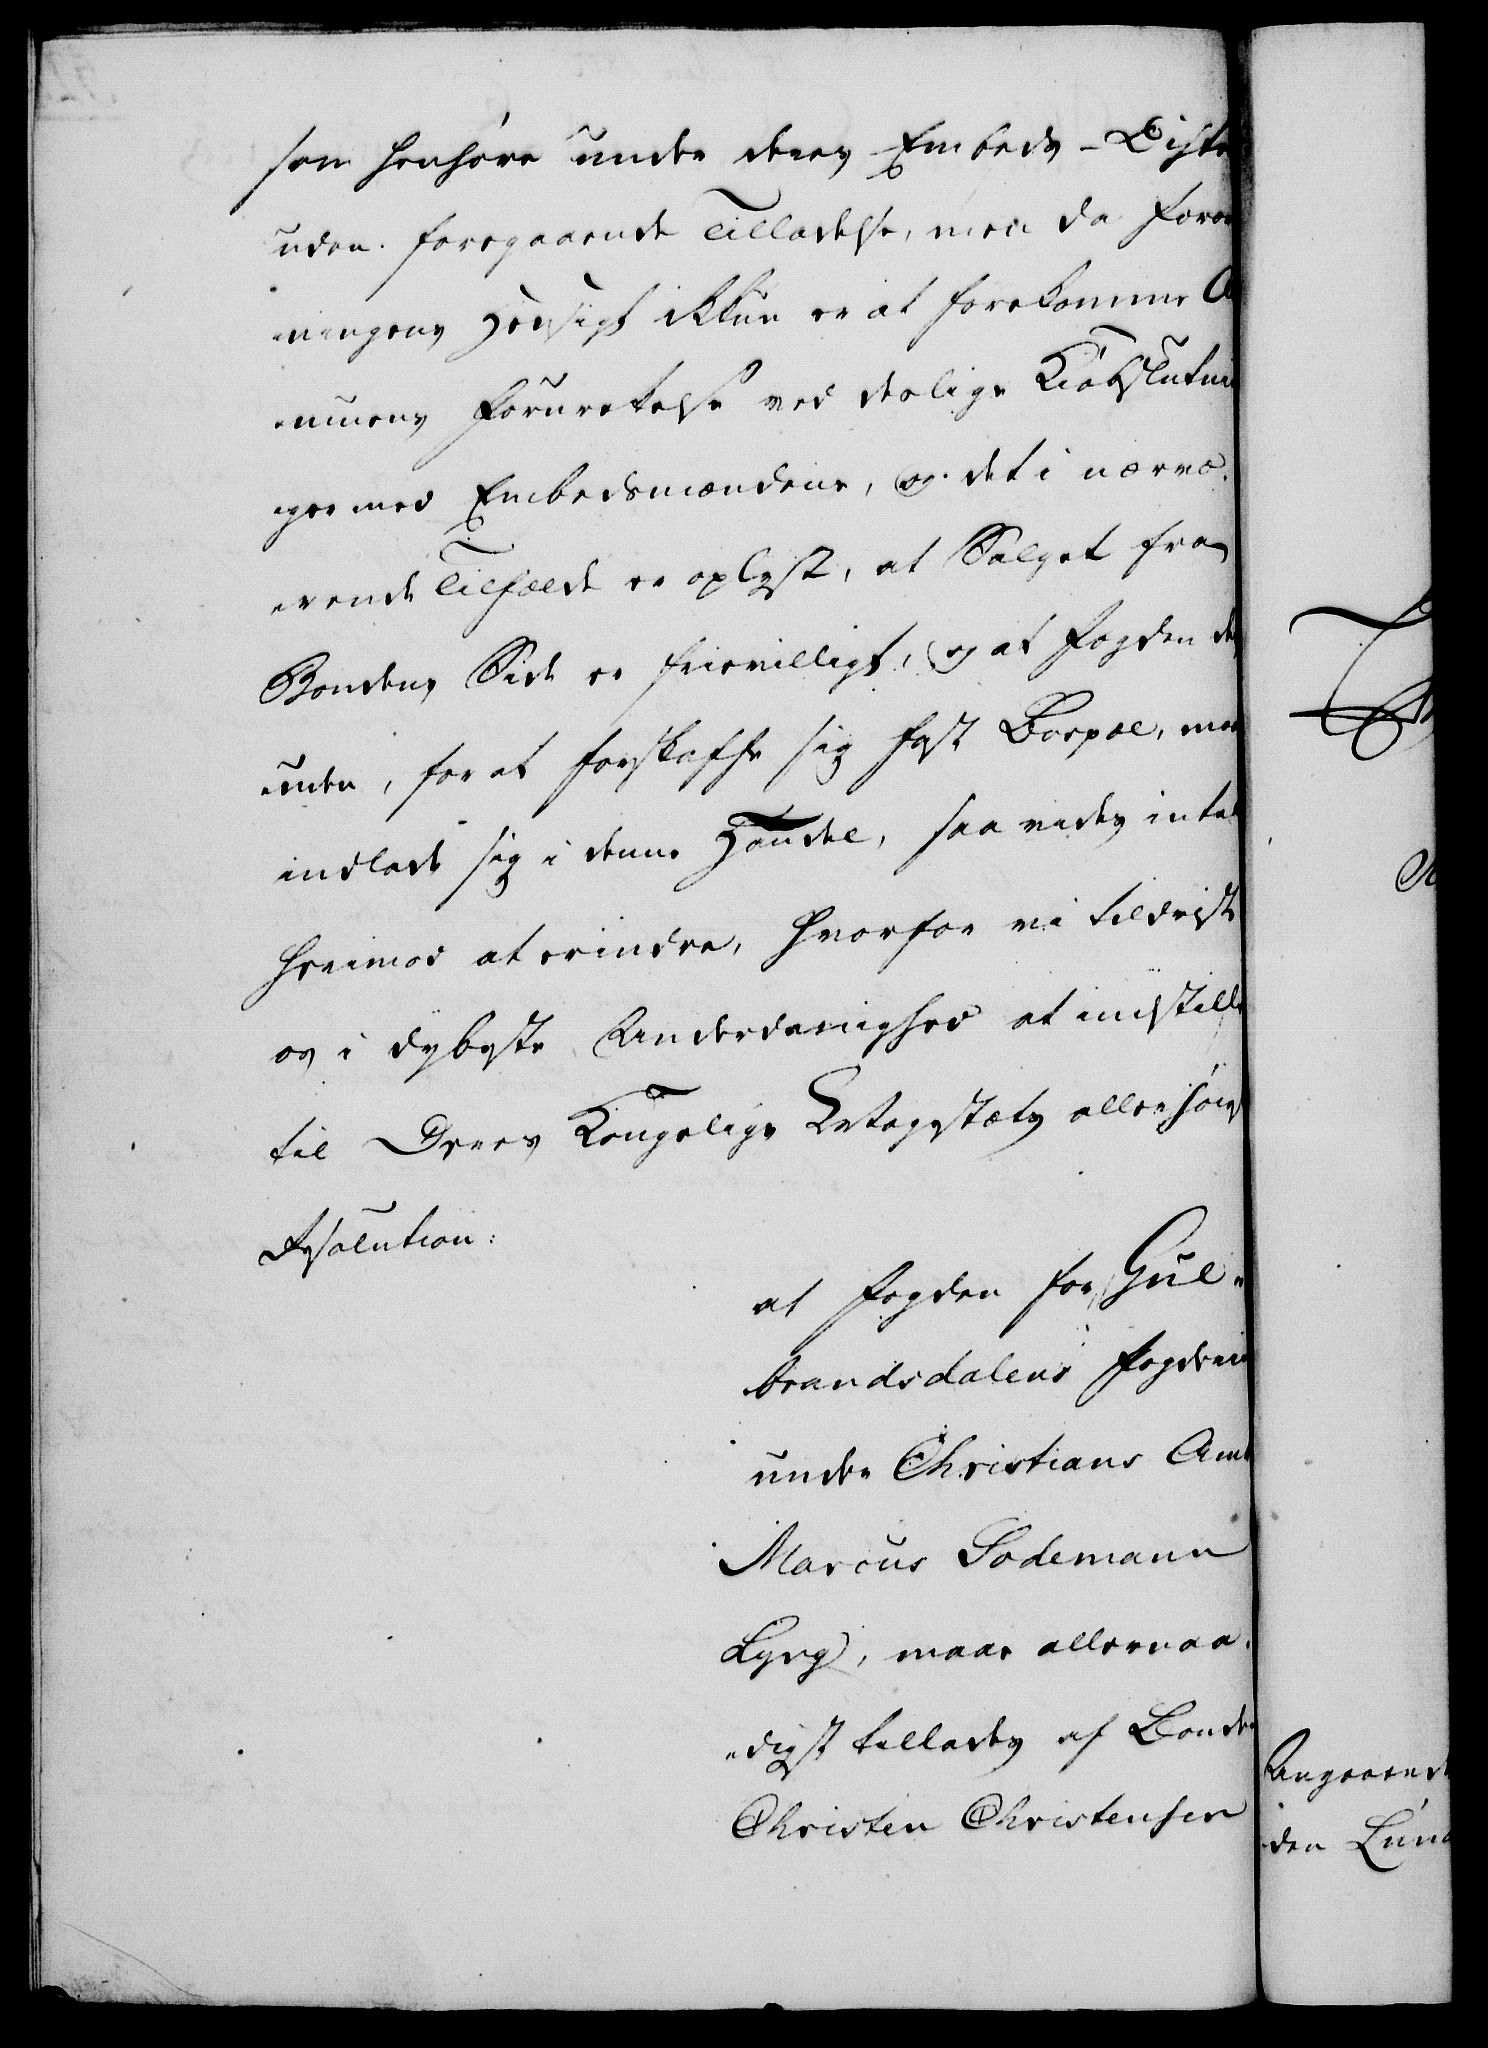 som henhøre under deres Embeds-Distr
uden foregaaende Tilladelse, men da Foror
ningens Hensigt ikkun er at forekomme A
muens Forurettelse ved deslige Kiøbslutnin
ger med Embedsmændene, og det i nærvæ-
rende Tilfælde er oplyst, at Salget fra
Bondens Side er frievilligt, og at Fogden des
uden, for at forskaffe sig fast Boepæl, maa
indlade sig i denne Handel, saa vides intet
herimod at erindre, hvorfor vi tildrist
os i dybeste Underdanighed at indstille
til Deres Kongelige Majestæts allerhøies
Resolution:
at Fogden for Gul-
brandsdalens Fogderie
under Christians Amt
Marcus Sodemann
Lyng, maae allernaa-
digst tillades af Bonde
Christen Christensen
Angaaende
den Lund